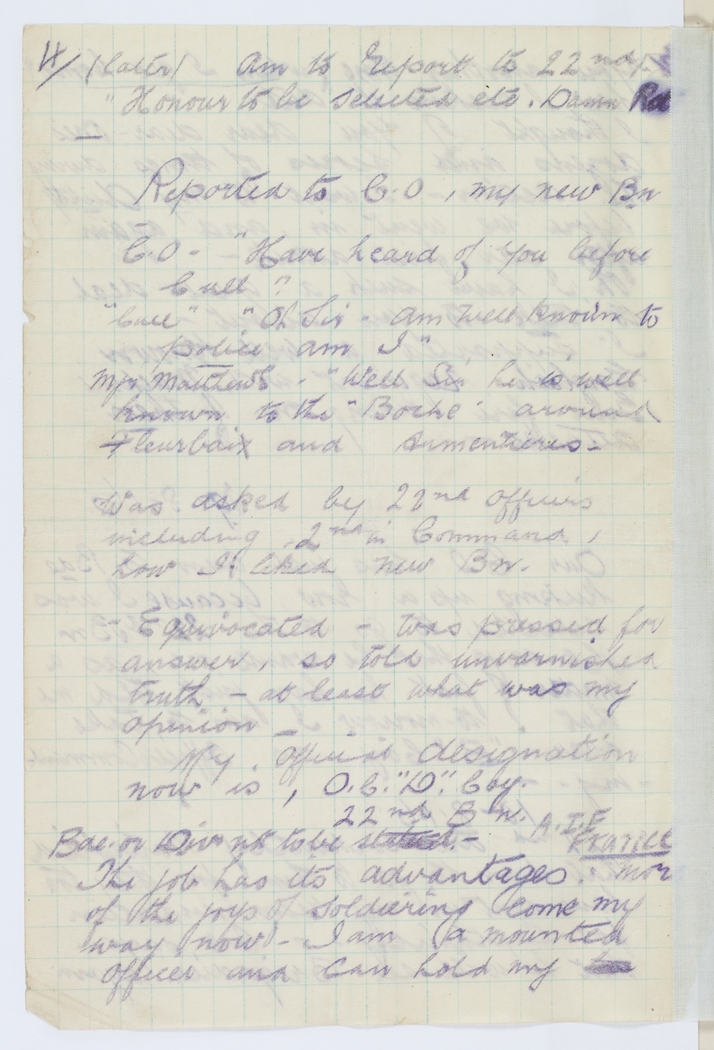 4/ (later) Am to Report to 22nd,
"Honour to be selected etc. Damn
Reported to C.O, my new Bn
C.O - "Have heard of you before
Cull?"
"Cull" "Oh Sir - am well known to
police am I"
Mjr Matthews - "Well Sir he is well
known to the "Boche" around
Fleurbaix and Armentieres. -
Was asked by 22nd officers
including 2nd in Command,
how I liked new Bn.
- Equivocated - was pressed for
answer, so told unvarnished
truth - at least what was my
opinion -
My official designation
now is, O.C. "D". Coy.
22nd Bn. A.I.F
France
Bde. or Div not to be stated. -
The job has its advantages. mor
of the joys of soldiering come my
way now - I am a mounted
officer and can hold my